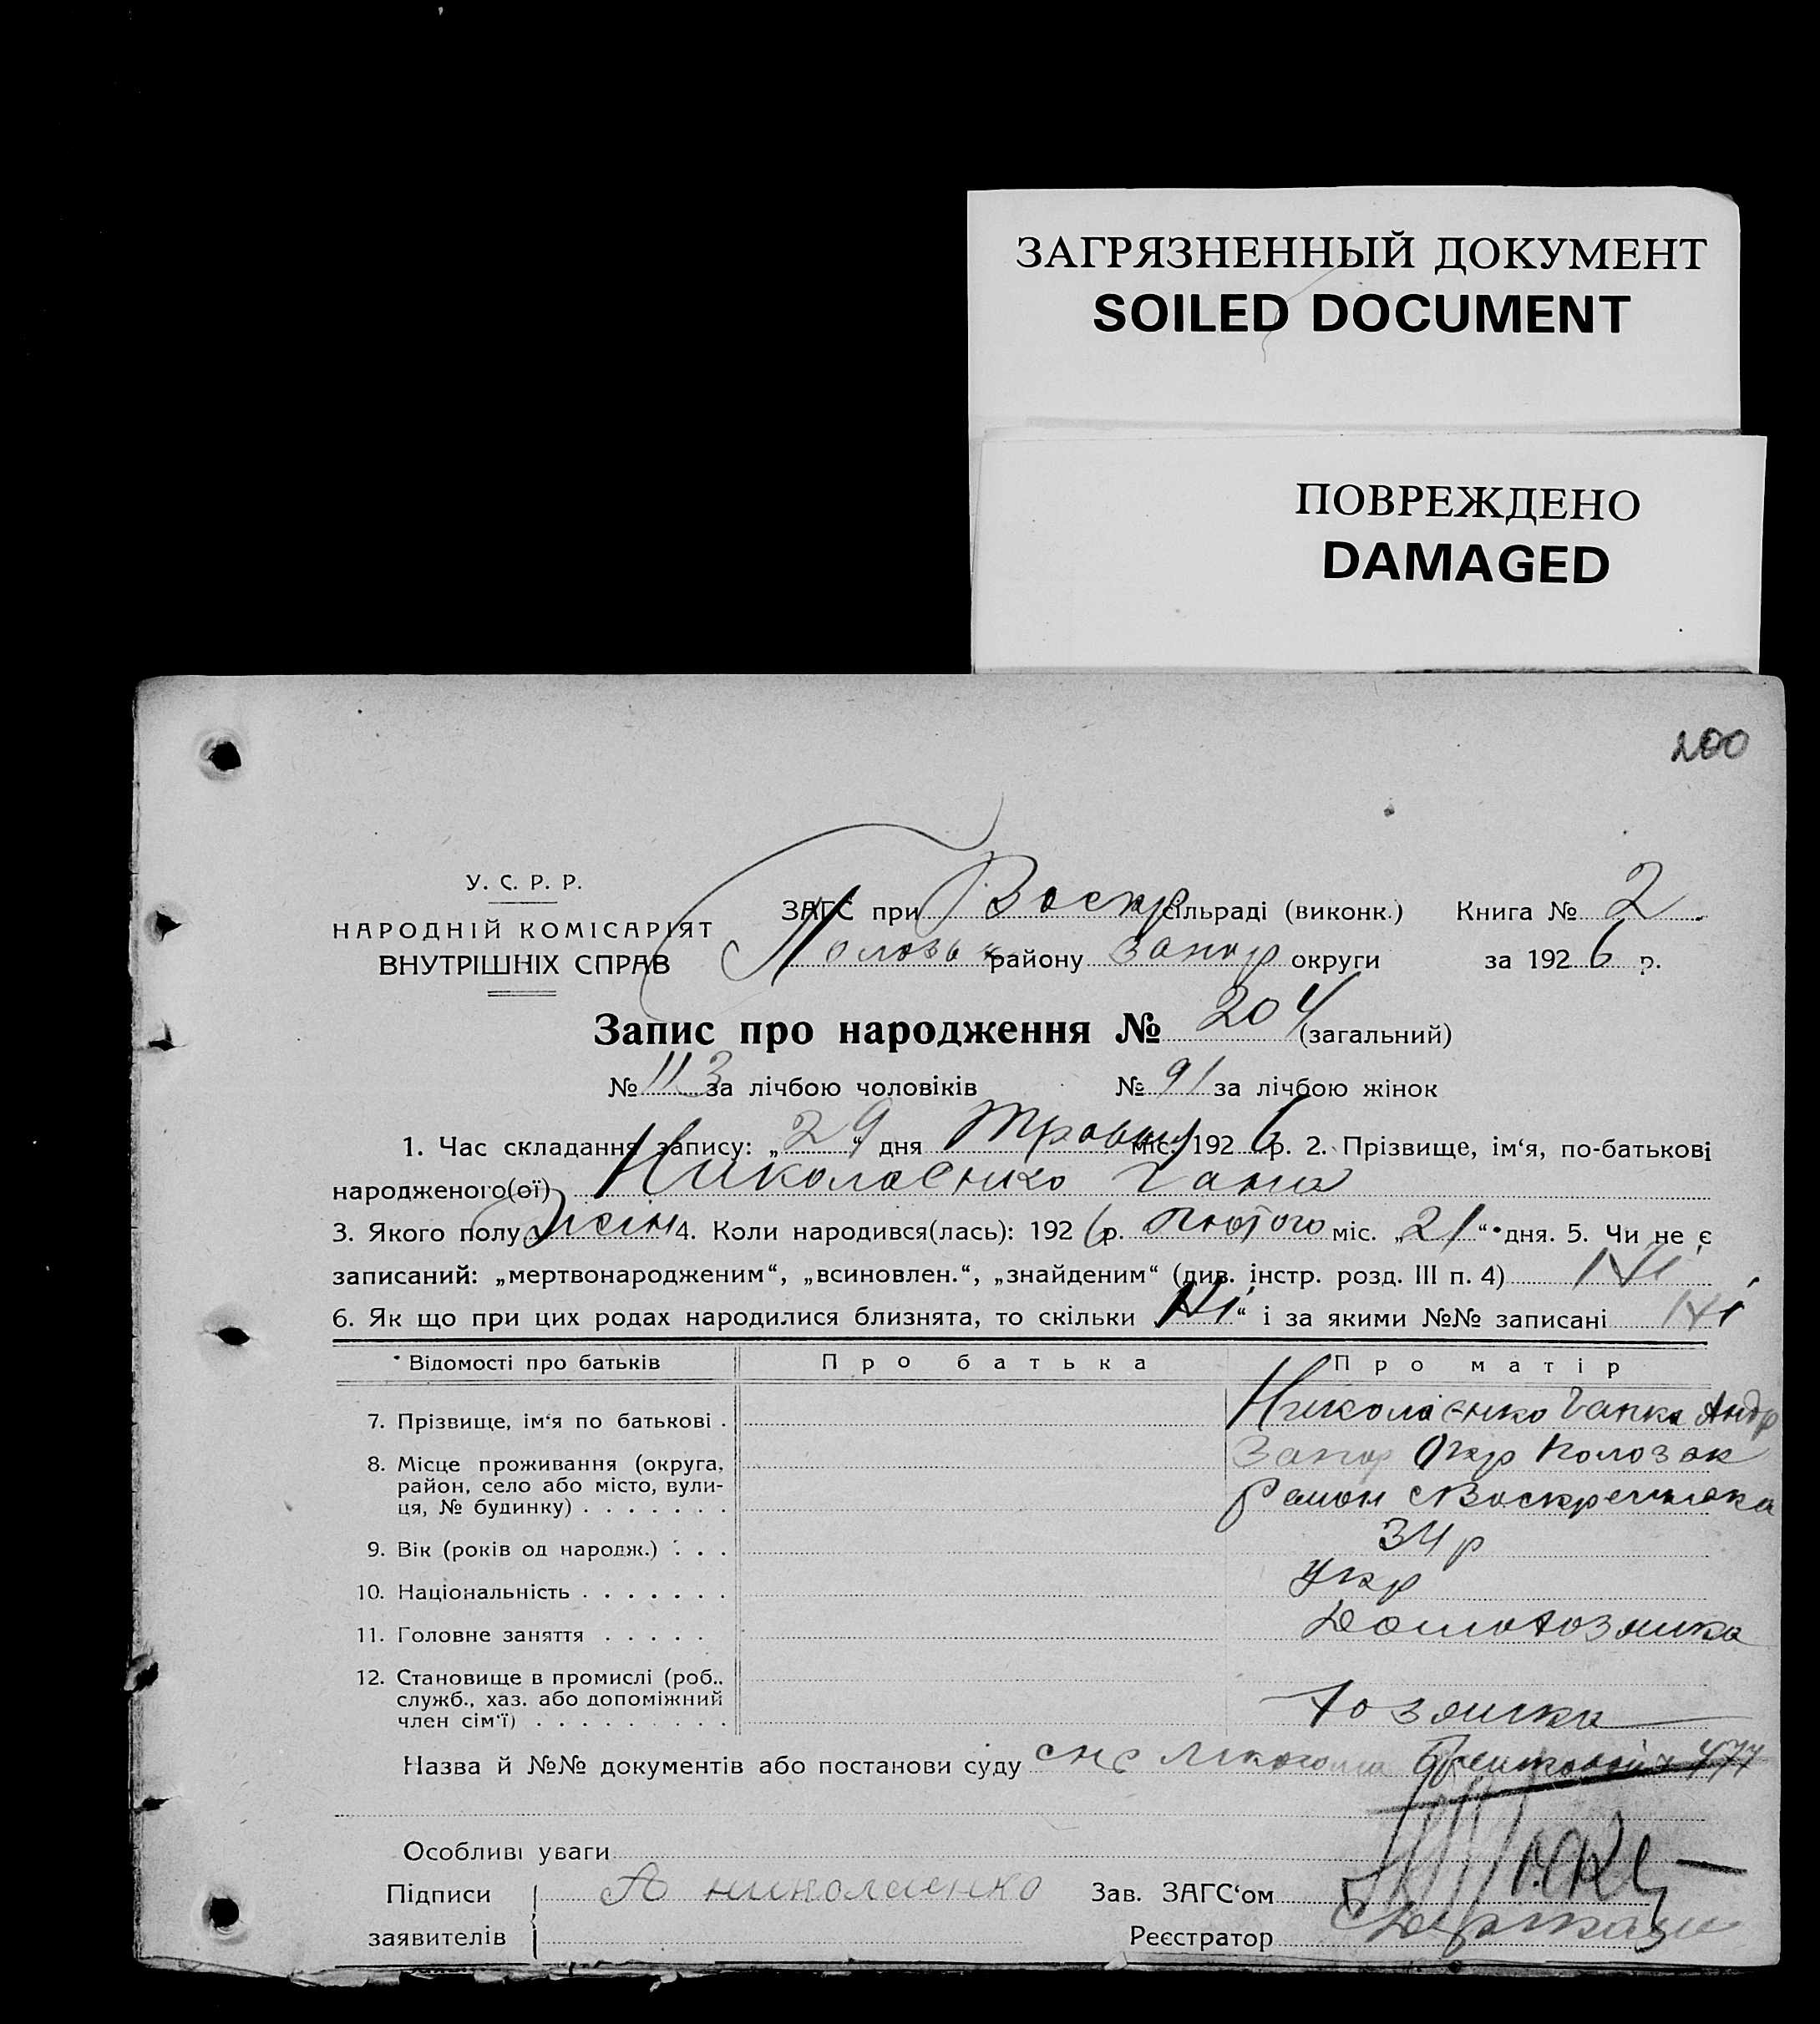 ЗАГРЯЗНЕННЫЙ ДОКУМЕНТ
SOILED DOCUMENT
ПОВРЕЖДЕНО
DAMAGED
200
У. С. Р. Р.
НАРОДНІЙ КОМІСАРІЯТ
ВНУТРІШНІХ СПРАВ
ЗАГС при Воскр сільраді (виконк.) Книга № 2
району Запор округи за 1926 р.
Запис про народження № 204 (загальний)
№ 113 за лічбою чоловіків № 91 за лічбою жінок
1. Час складання запису: „29“ дня Травня міс. 1926 р. 2. Прізвище, ім‘я, по-батькові
народженого(ої) Николаенко Гана
3. Якого полу жін 4. Коли народився(лась): 1926 р. Лютого міс. „21“ дня. 5. Чи не є
записаний: „мертвонародженим“, „всиновлен.“, „знайденим“ (див. інстр. розд. III п. 4) Ні
6. Як що при цих родах народилися близнята, то скільки „Ні“ і за якими №№ записані Ні
Відомості про батьків Про батька Про матір
7. Прізвище, ім‘я по батькові . Николаєнко Ганна Андр
8. Місце проживання (округа, Запор Окр Полозьк
район, село або місто, вули-
ця, № будинку) . . . . . . . Район с Воскресенка
9. Вік (років од народж.) . . . 34 р
10. Національність . . . . . . . Укр
11. Головне заняття . . . . . Домохозяйка
12. Становище в промислі (роб.,
служб., хаз. або допоміжний
член сім‘ї) . . . . . . . . . хозяйка
Назва й №№ документів або постанови суду 477
Особливі уваги
Підписи А Николаенко Зав. ЗАГС‘ом
заявителів Реєстратор